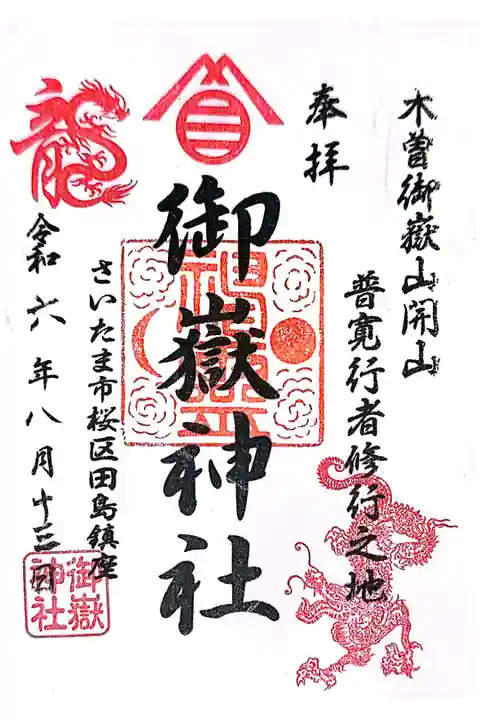 木曽御嶽山開山
普寛行者修行之地
奉拝
御嶽神社
さいたま市桜区田島鎮座
龍
令和六年八月十三日
御嶽
神社